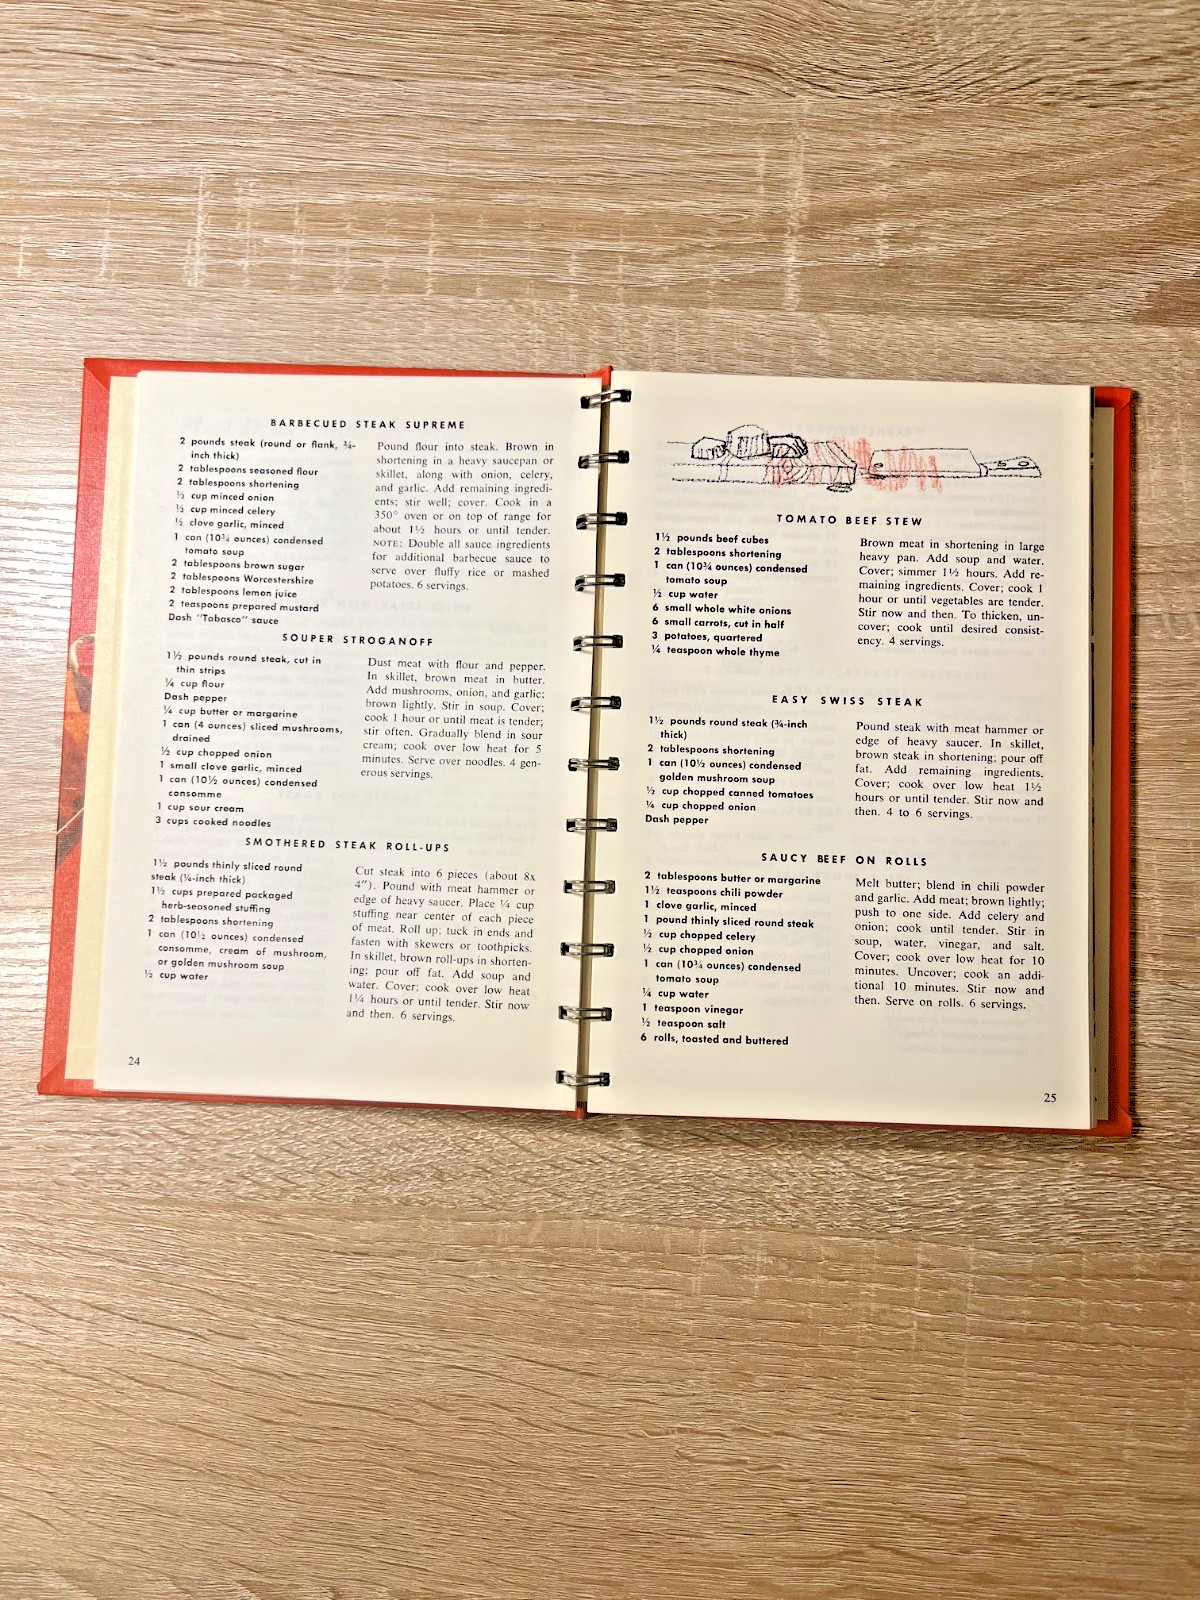 BARBECUED STEAK SUPREME
2 pounds steak (round or flank, ¾-
inch thick)
2 tablespoons seasoned flour
2 tablespoons shortening
½ cup minced onion
½ cup minced celery
½ clove garlic, minced
1 can (10¾ ounces) condensed
tomato soup
2 tablespoons brown sugar
2 tablespoons Worcestershire
2 tablespoons lemon juice
2 teaspoons prepared mustard
Dash "Tabasco" sauce
Pound flour into steak. Brown in
shortening in a heavy saucepan or
skillet, along with onion, celery,
and garlic. Add remaining ingredi-
ents; stir well; cover. Cook in a
350° oven or on top of range for
about 1½ hours or until tender.
NOTE: Double all sauce ingredients
for additional barbecue sauce to
serve over fluffy rice or mashed
potatoes. 6 servings.
SOUPER STROGANOFF
1½ pounds round steak, cut in
thin strips
¼ cup flour
Dash pepper
¼ cup butter or margarine
1 can (4 ounces) sliced mushrooms,
drained
½ cup chopped onion
1 small clove garlic, minced
1 can (10½ ounces) condensed
consomme
1 cup sour cream
3 cups cooked noodles
Dust meat with flour and pepper.
In skillet, brown meat in butter.
Add mushrooms, onion, and garlic;
brown lightly. Stir in soup. Cover;
cook 1 hour or until meat is tender;
stir often. Gradually blend in sour
cream; cook over low heat for 5
minutes. Serve over noodles. 4 gen-
erous servings.
SMOTHERED STEAK ROLL-UPS
1½ pounds thinly sliced round
steak (¼-inch thick)
1½ cups prepared packaged
herb-seasoned stuffing
2 tablespoons shortening
1 can (10½ ounces) condensed
consomme, cream of mushroom,
or golden mushroom soup
½ cup water
Cut steak into 6 pieces (about 8x
4"). Pound with meat hammer or
edge of heavy saucer. Place ¼ cup
stuffing near center of each piece
of meat. Roll up; tuck in ends and
fasten with skewers or toothpicks.
In skillet, brown roll-ups in shorten-
ing; pour off fat. Add soup and
water. Cover; cook over low heat
1¼ hours or until tender. Stir now
and then. 6 servings.
24
TOMATO BEEF STEW
1½ pounds beef cubes
2 tablespoons shortening
1 can (10¾ ounces) condensed
tomato soup
½ cup water
6 small whole white onions
6 small carrots, cut in half
3 potatoes, quartered
¼ teaspoon whole thyme
Brown meat in shortening in large
heavy pan. Add soup and water.
Cover; simmer 1½ hours. Add re-
maining ingredients. Cover; cook 1
hour or until vegetables are tender.
Stir now and then. To thicken, un-
cover; cook until desired consist-
ency. 4 servings.
EASY SWISS STEAK
1½ pounds round steak (¾-inch
thick)
2 tablespoons shortening
1 can (10½ ounces) condensed
golden mushroom soup
½ cup chopped canned tomatoes
¼ cup chopped onion
Dash pepper
Pound steak with meat hammer or
edge of heavy saucer. In skillet,
brown steak in shortening; pour off
fat. Add remaining ingredients.
Cover; cook over low heat 1½
hours or until tender. Stir now and
then. 4 to 6 servings.
SAUCY BEEF ON ROLLS
2 tablespoons butter or margarine
1½ teaspoons chili powder
1 clove garlic, minced
1 pound thinly sliced round steak
½ cup chopped celery
½ cup chopped onion
1 can (10¾ ounces) condensed
tomato soup
¼ cup water
1 teaspoon vinegar
½ teaspoon salt
6 rolls, toasted and buttered
Melt butter; blend in chili powder
and garlic. Add meat; brown lightly;
push to one side. Add celery and
onion; cook until tender. Stir in
soup, water, vinegar, and salt.
Cover; cook over low heat for 10
minutes. Uncover; cook an addi-
tional 10 minutes. Stir now and
then. Serve on rolls. 6 servings.
25